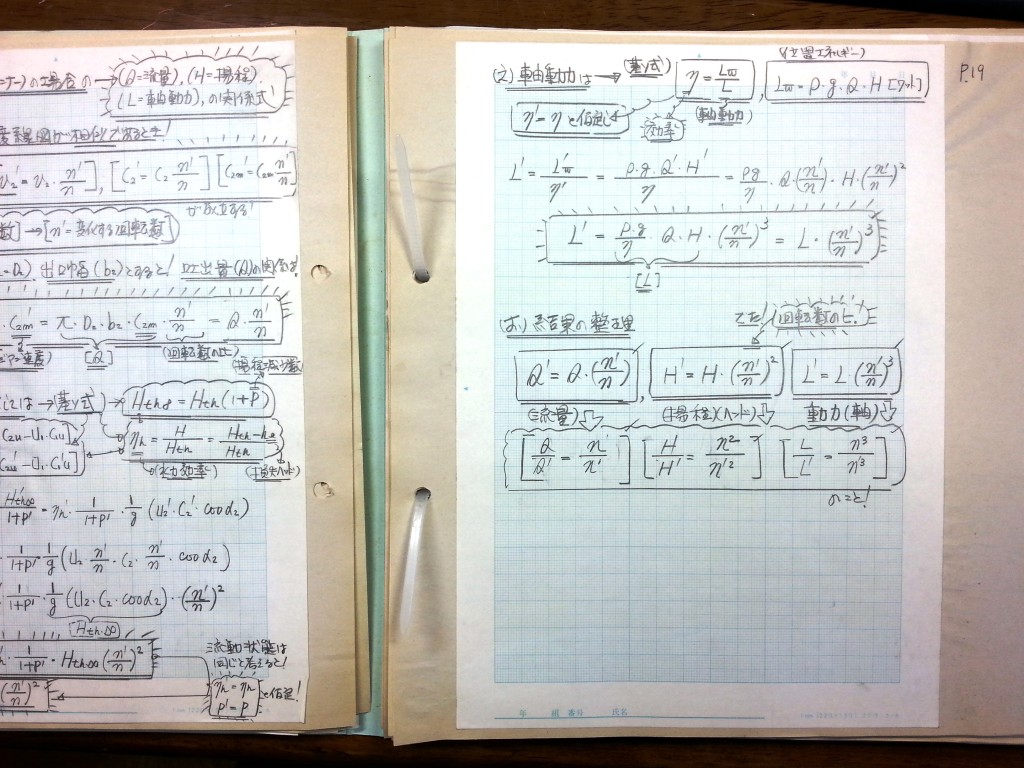 の場合の→(Q=流量),(H=揚程),
(L=軸動力),の関係式!
度線図が相似であるとき!
υ₂'=υ₂·n'/n],[C₂'=C₂·n'/n][C₂m'=C₂m·n'/n]
が成立する!
数]→[n'=変化する回転数]
出口幅(b₂)とすると!吐出量(Q)の関係は!
C₂m'=π·D₂·b₂·C₂m·n'/n=Q·n'/n
[Q] (回転数の比)
(揚程減少数)
は→(基本式)→Hth∞=Hth(1+P)
C₂u-U₁·C₁u]
ηh=H/Hth=Hth-hℓ/Hth
C₂'u-U₁'·C₁'u]
(水力効率) (損失ヘッド)
H'th∞/1+P'=ηh'·1/1+P'·1/g(U₂'·C₂'·cosα₂)
1/1+P'·1/g(U₂·n'/n·C₂·n'/n·cosα₂)
1/1+P'·1/g(U₂·C₂·cosα₂)·(n'/n)²
[Hth∞]
1/1+P'·Hth∞(n'/n)²
流動状態は
同じと考えると!
(n'/n)²
ηh'=ηh
P'=P
と仮定!
P.19
(位置エネルギー)
(え)軸動力は→(基本式) η=Lw/L, Lw=ρ·g·Q·H[ワット]
η'=ηと仮定! (効率) (軸動力)
L'=L'w/η'=ρ·g·Q'·H'/η=ρg/η·Q·(n'/n)·H·(n'/n)²
L'=ρ·g/η·Q·H·(n'/n)³=L·(n'/n)³
[L]
(お)結果の整理 でた! (回転数の比!)
Q'=Q·(n'/n), H'=H·(n'/n)² L'=L·(n'/n)³
(流量) (揚程)(ヘッド) 動力(軸)
[Q/Q'=n/n'] [H/H'=n²/n'²] [L/L'=n³/n'³]
のこと!
年 組 番号 氏名